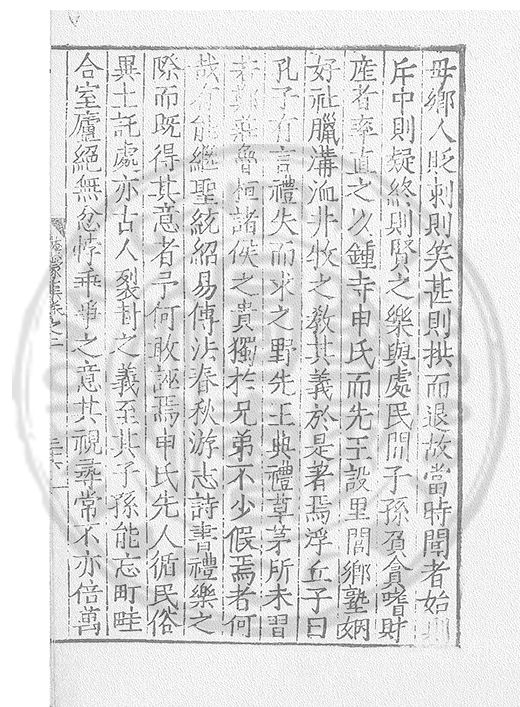 毋鄉人貶刺則笑甚則拱而退故當時聞者始則
斥中則疑終則賢之樂與處民間子孫頁貪嗜財
産者率直之以鍾寺申氏而先王設里閭鄉塾婣
好社臘溝洫井牧之教其義於是著焉浮丘子曰
孔子有言禮失而求之野先王典禮草茅所未習
若鄭莊魯桓諸侯之貴獨於兄弟不少假焉者何
哉有能繼聖統紹易傳法春秋游志詩書禮樂之
際而既得其意者予何敢誣焉申氏先人循民俗
異土託處亦古人裂
之義至其子孫能忘町畦
合室廬絕無忿悖乖爭之意其視尋常不亦倍萬